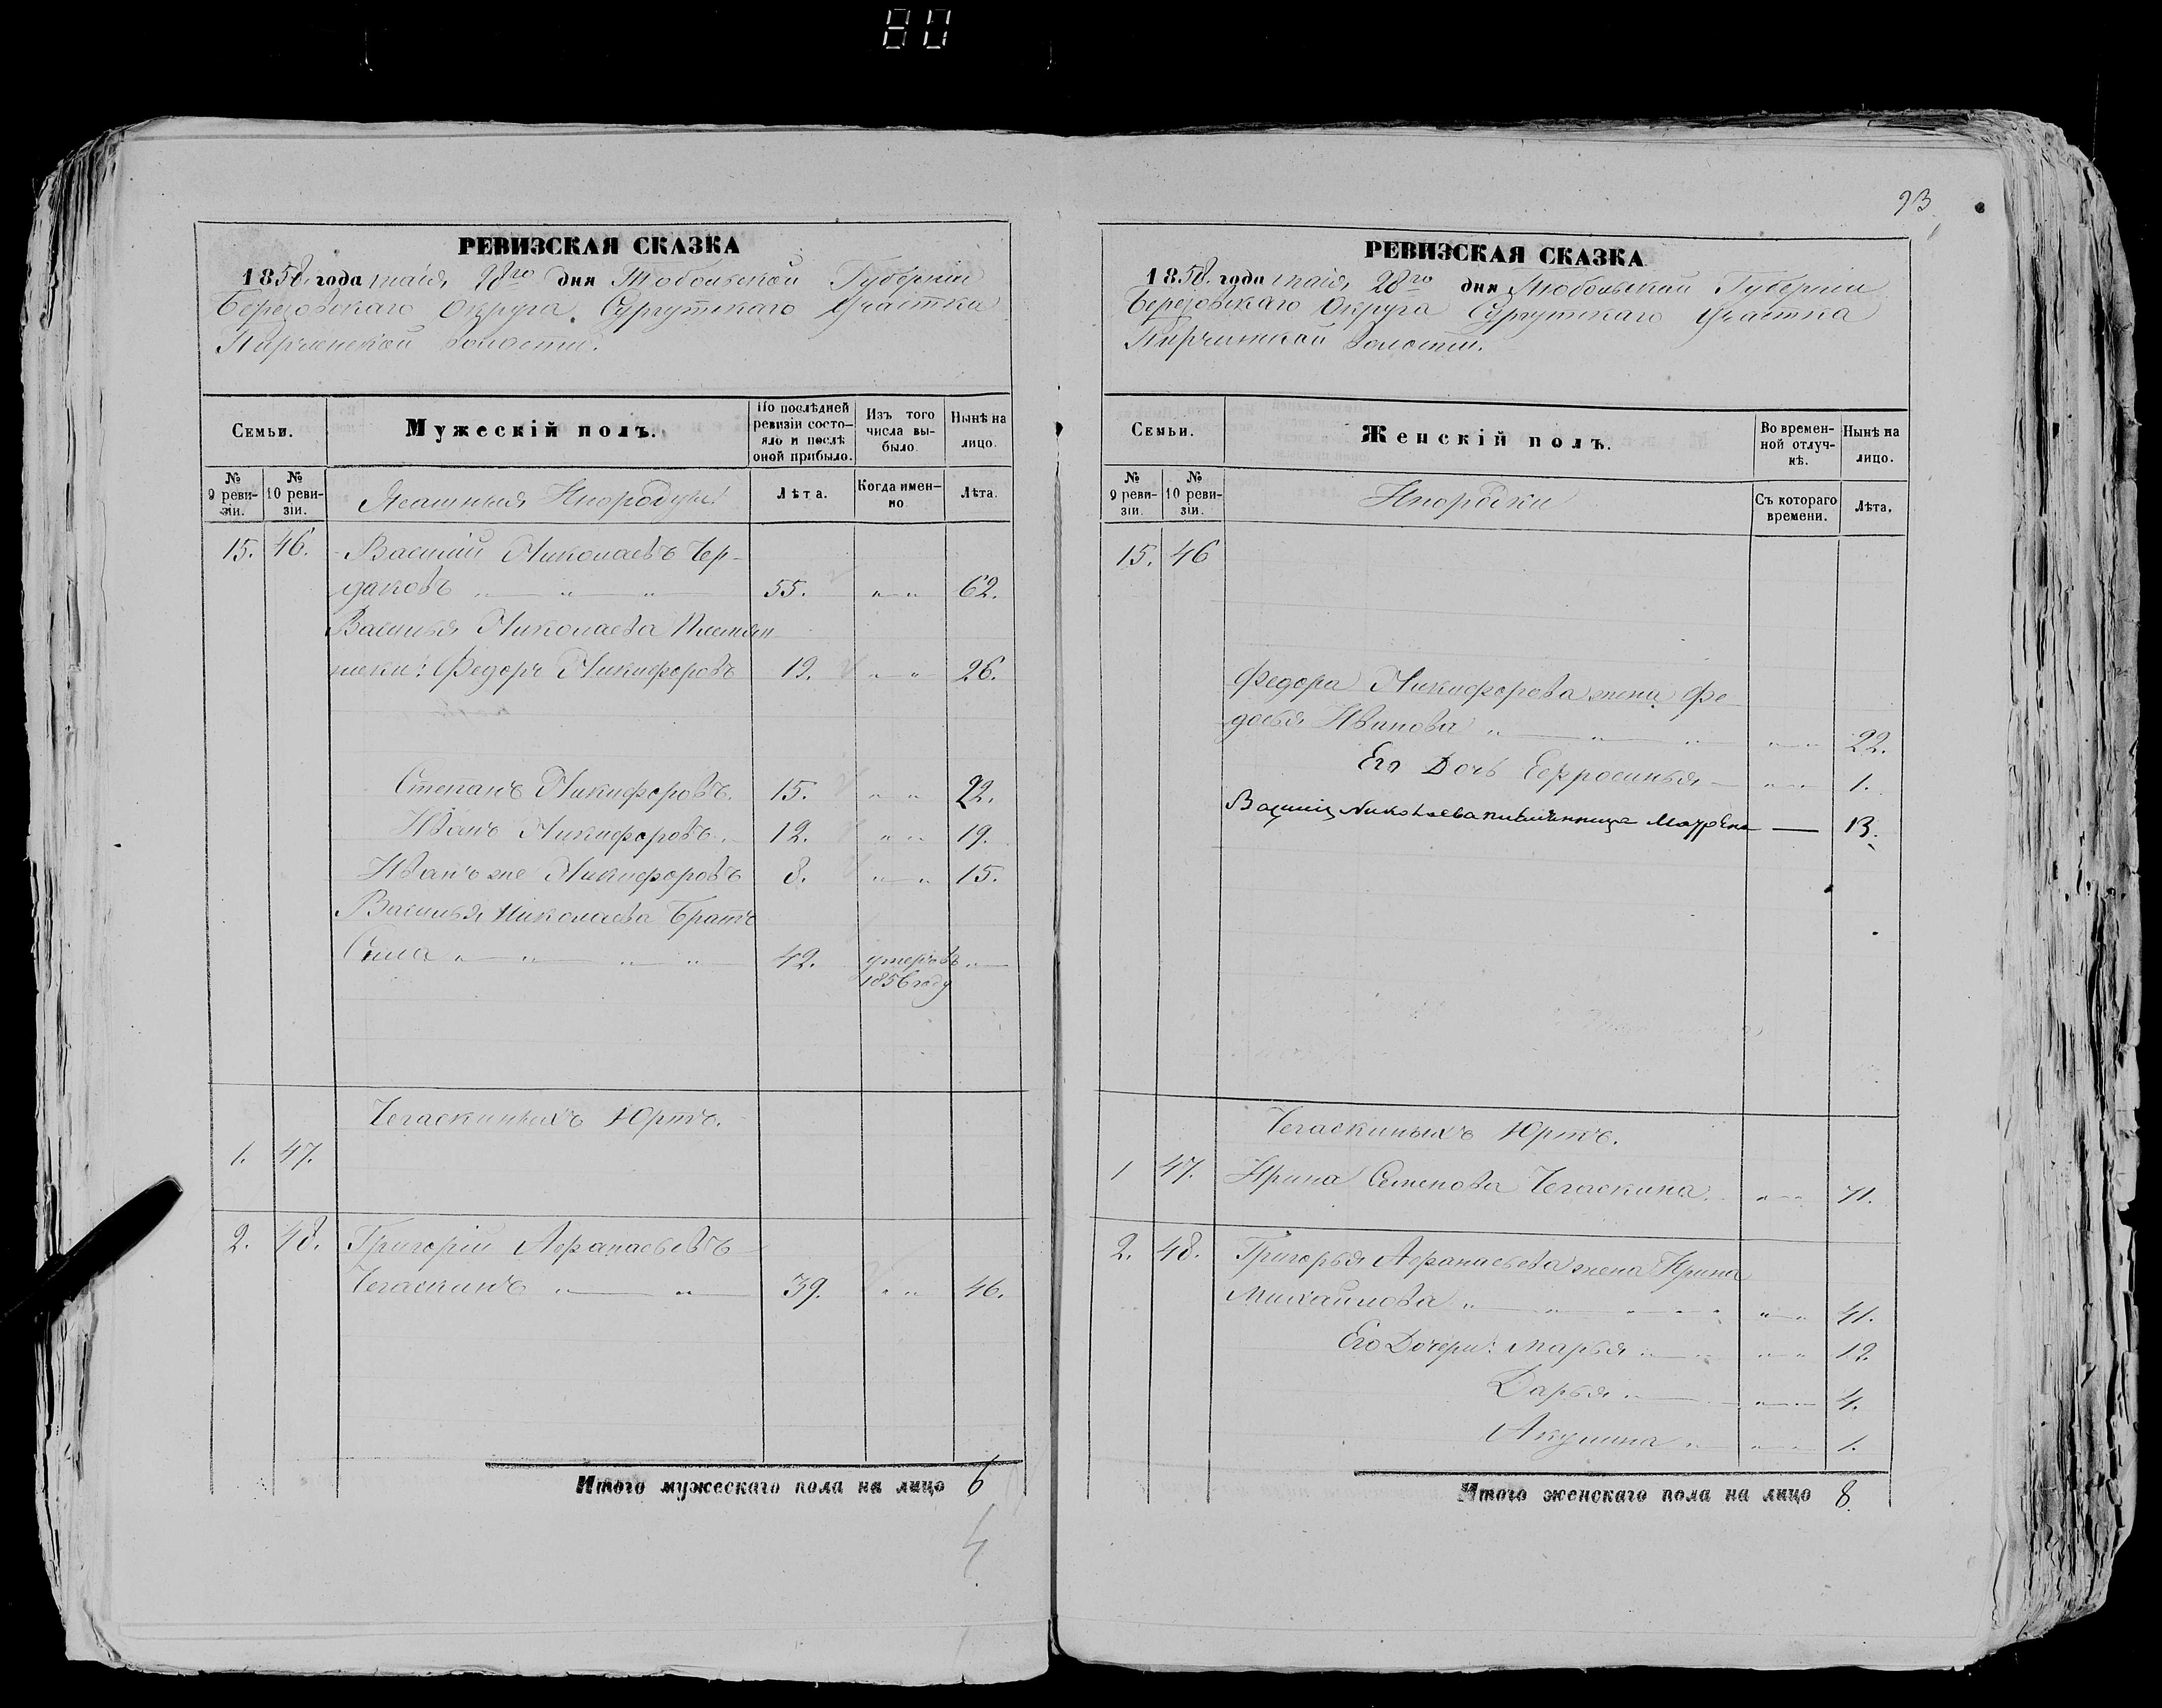 80
93
РЕВИЗСКАЯ СКАЗКА
1858. года маія, 28го дня Тобольской Губерніи
Березовскаго Округа. Сургутскаго Участка
Пирченской Волости.
Семьи.
Мужескій полъ.
По послѣдней ревизіи состояло и послѣ оной прибыло.
Изъ того числа выбыло.
Нынѣ на лицо.
№ 9 ревизіи.
№ 10 ревизіи.
Ясашныя Инородцы!
Лѣта.
Когда именно
Лѣта.
15. 46. Василій Николаевъ Чер-
даковъ 55. 62.
Василья Николаева Племян
ники: Федоръ Никифоровъ 19. 26.
Степанъ Никифоровъ. 15. 22.
Иванъ Никифоровъ. 12. 19.
Иванъ же Никифоровъ 8. 15.
Василья Николаева Братъ
Сила 42. умеръ въ
1856 году
Чегаскиныхъ Юртъ.
1. 47.
2. 48. Григорій Афанасьевъ
Чегаскинъ 39. 46.
Итого мужескаго пола на лицо 6
4
РЕВИЗСКАЯ СКАЗКА
1858. года маія, 28го дня Тобольской Губерніи
Березовскаго Округа Сургутскаго Участка
Волости.
Семьи.
Женскій полъ.
Во временной отлучкѣ.
Нынѣ на лицо.
№ 9 ревизіи.
№ 10 ревизіи.
Инородки
Съ котораго времени.
Лѣта.
15. 46
Федора Никифорова жена Фе-
досья Иванова 22.
Его Дочь Ефросинья 1.
Николаева 13.
Чегаскиныхъ Юртъ.
1 47. Ирина Семенова Чегаскина 71.
2. 48. Григорья Афанасьева жена Ирина
Михайлова 41.
Его Дочери: Марья 12.
Дарья 4.
Акулина 1.
Итого женскаго пола на лицо 8.